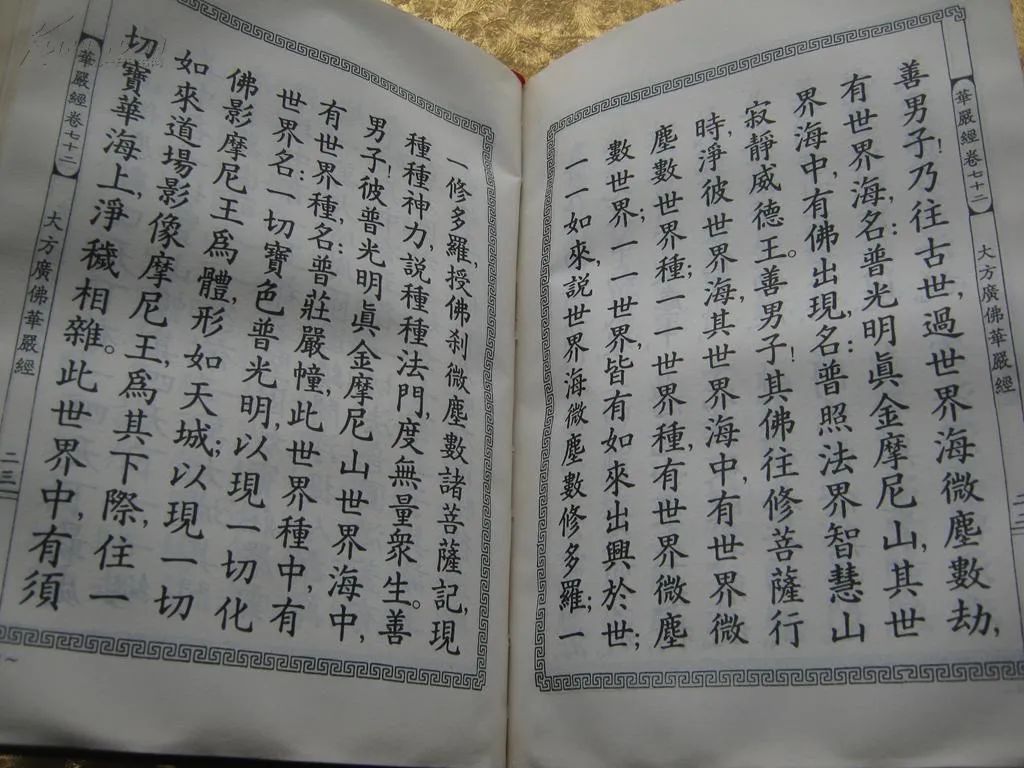 【華嚴經卷七十二】
大方廣佛華嚴經
善男子!乃往古世,過世界海微塵數劫,
有世界海,名:普光明眞金摩尼山,其世
界海中,有佛出現,名:普照法界智慧山
寂靜威德王。善男子!其佛往修菩薩行
時,淨彼世界海,其世界海中,有世界微
塵數世界種;一一世界種,有世界微塵
數世界;一一世界,皆有如來出興於世;
一一如來,說世界海微塵數修多羅;一
一修多羅,授佛刹微塵數諸菩薩記,現
種種神力,說種種法門,度無量衆生。善
男子!彼普光明眞金摩尼山世界海中,
有世界種,名:普莊嚴幢,此世界種中,有
世界名:一切寶色普光明,以現一切化
佛影摩尼王爲體,形如天城;以現一切
如來道場影像摩尼王,爲其下際,住一
切寶華海上,淨穢相雜。此世界中,有須
【華嚴經卷七十二】
大方廣佛華嚴經
二三